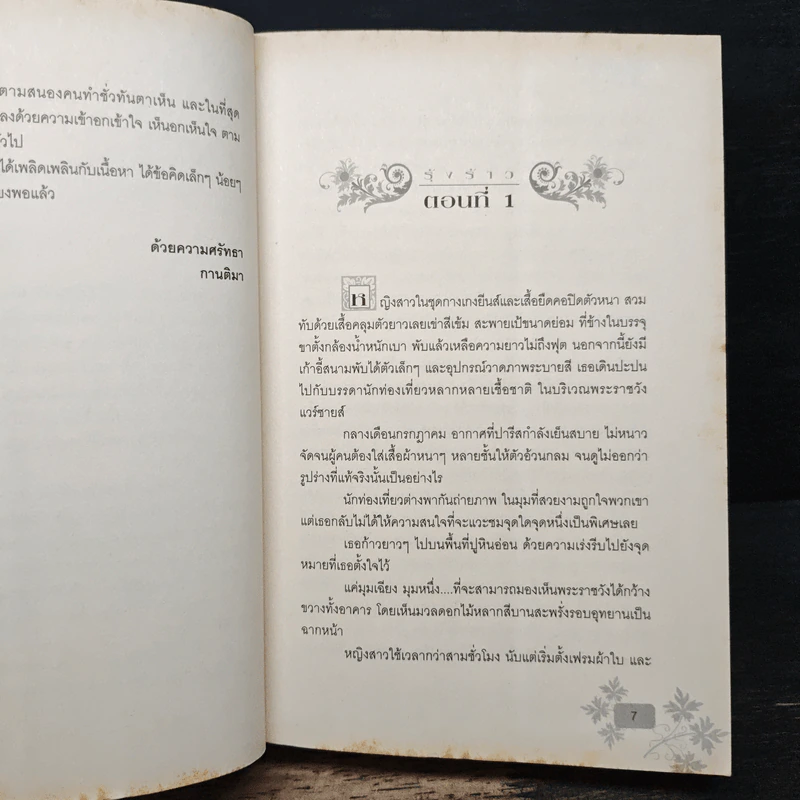 ตามสนองคนทำชั่วทันตาเห็น และในที่สุด
ลงด้วยความเข้าอกเข้าใจ เห็นอกเห็นใจ ตาม
ได้เพลิดเพลินกับเนื้อหา ได้ข้อคิดเล็กๆ น้อยๆ
พอแล้ว
ด้วยความศรัทธา
กานติมา
รุ้งร้าว
ตอนที่ 1
หญิงสาวในชุดกางเกงยีนส์และเสื้อยืดคอปิดตัวหนา สวม
ทับด้วยเสื้อคลุมตัวยาวเลยเข่าสีเข้ม สะพายเป้ขนาดย่อม ที่ข้างในบรรจุ
ขาตั้งกล้องน้ำหนักเบา พับแล้วเหลือความยาวไม่ถึงฟุต นอกจากนี้ยังมี
เก้าอี้สนามพับได้ตัวเล็กๆ และอุปกรณ์วาดภาพระบายสี เธอเดินปะปน
ไปกับบรรดานักท่องเที่ยวหลากหลายเชื้อชาติ ในบริเวณพระราชวัง
แวร์ซายส์
กลางเดือนกรกฎาคม อากาศที่ปารีสกำลังเย็นสบาย ไม่หนาว
จัดจนผู้คนต้องใส่เสื้อผ้าหนาๆ หลายชั้นให้ตัวอ้วนกลม จนดูไม่ออกว่า
รูปร่างที่แท้จริงนั้นเป็นอย่างไร
นักท่องเที่ยวต่างพากันถ่ายภาพ ในมุมที่สวยงามถูกใจพวกเขา
แต่เธอกลับไม่ได้ให้ความสนใจที่จะแวะชมจุดใดจุดหนึ่งเป็นพิเศษเลย
เธอก้าวยาวๆ ไปบนพื้นที่ปูหินอ่อน ด้วยความเร่งรีบไปยังจุด
หมายที่เธอตั้งใจไว้
แค่มุมเฉียง มุมหนึ่ง....ที่จะสามารถมองเห็นพระราชวังได้กว้าง
ขวางทั้งอาคาร โดยเห็นมวลดอกไม้หลากสีบานสะพรั่งรอบอุทยานเป็น
ฉากหน้า
หญิงสาวใช้เวลากว่าสามชั่วโมง นับแต่เริ่มตั้งเฟรมผ้าใบ และ
7